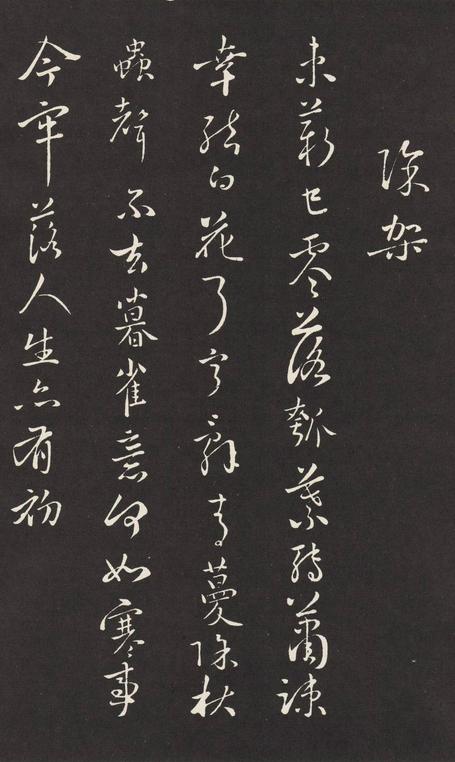 除架
束薪已零落瓠葉轉蕭疎
幸結白花了寧辭青蔓除秋
蟲聲不去暮雀意何如寒事
今牢落人生亦有初